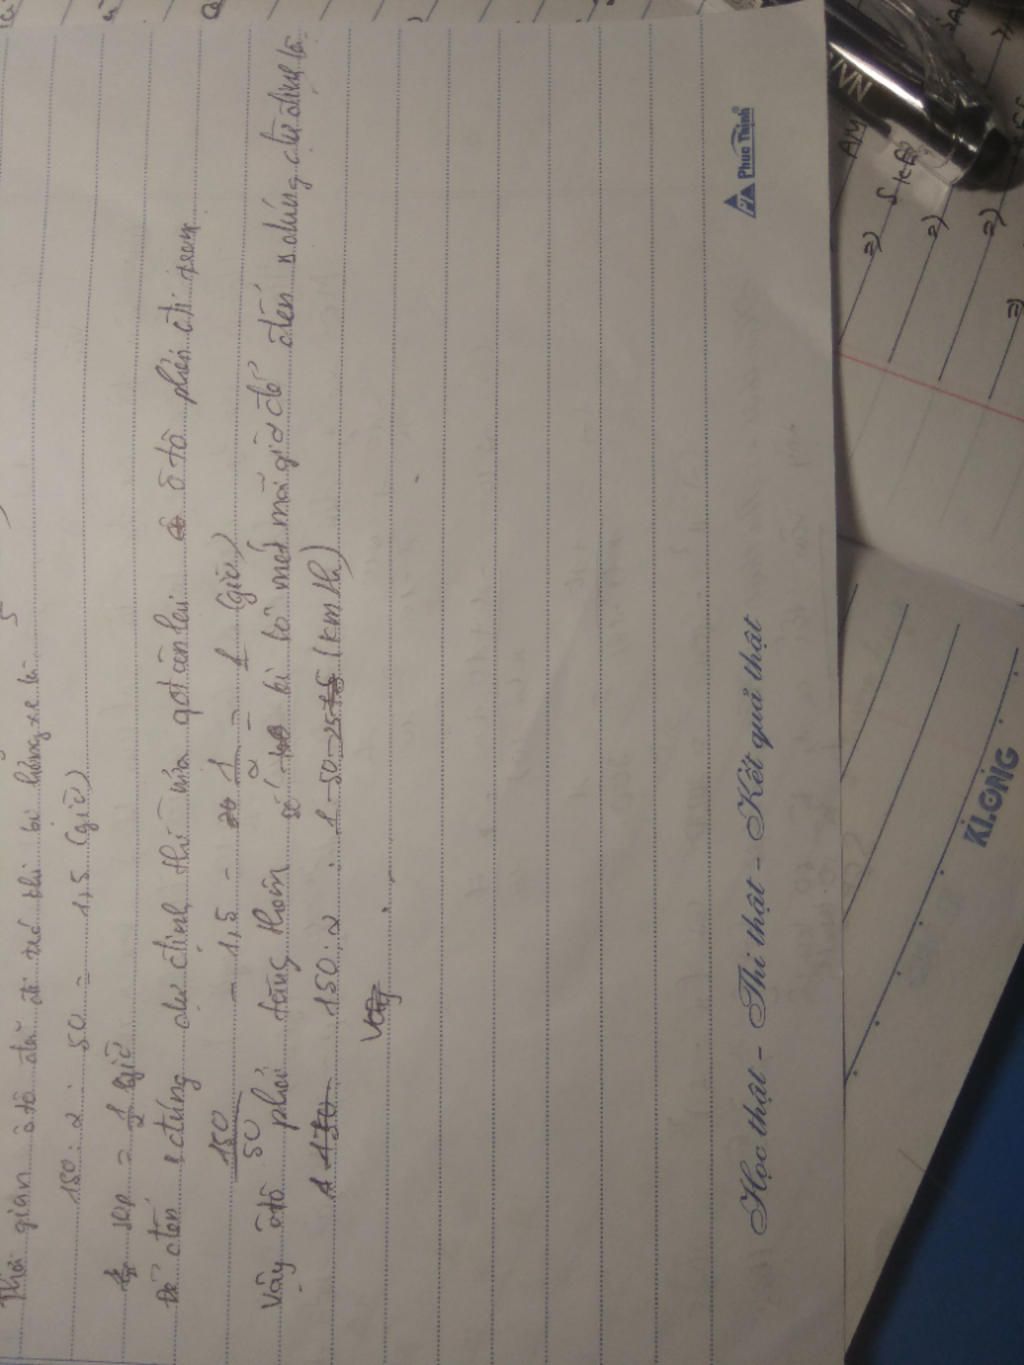 Thời gian ô tô đã đi trước khi bị hỏng xe là
150 : 2 : 50 = 1,5 (giờ)
30p = 1/2 giờ
Để đến đúng dự định thì nửa qđ còn lại ô tô phải đi trong
150/50 - 1,5 - 1/2 = 1 (giờ)
Vậy ô tô phải tăng thêm số ki lô mét mỗi giờ để đến đúng dự định là
150 : 2 : 1 - 50 = 25 (km/h)
Học thật - Thi thật - Kết quả thật
Phuc Thinh®
KLONG